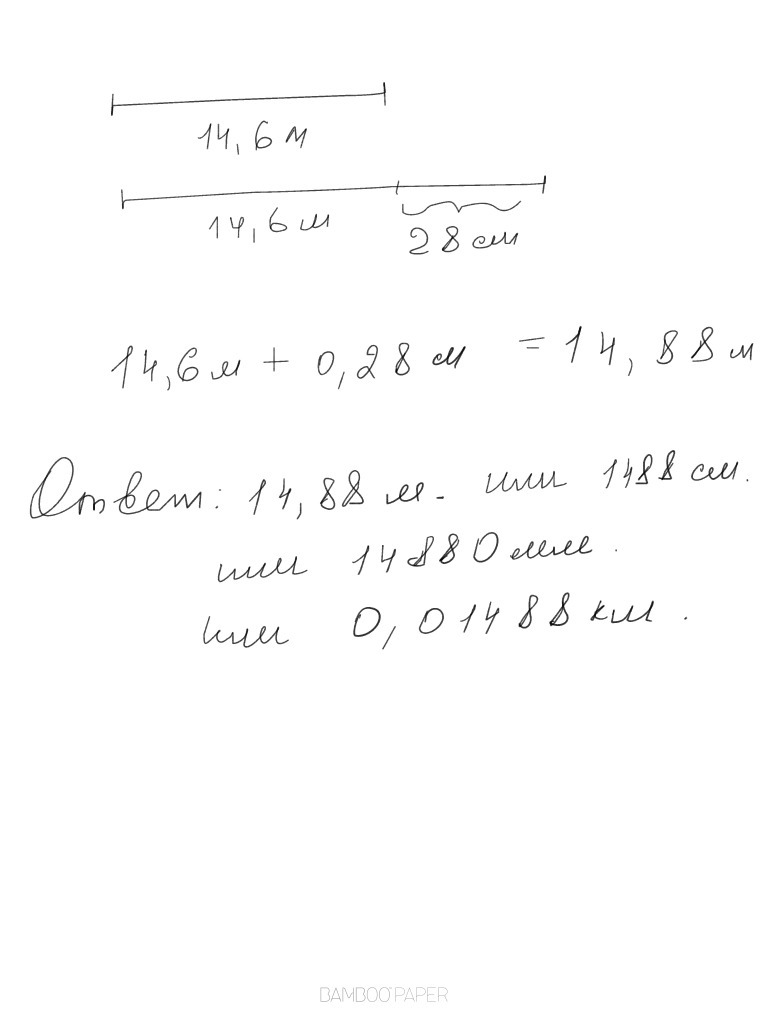 14,6 м
14,6 м
28 см
14,6 м + 0,28 м = 14,88 м
Ответ: 14,88 м. или 1488 см.
или 14880 мм.
или 0,01488 км.
BAMBOO PAPER